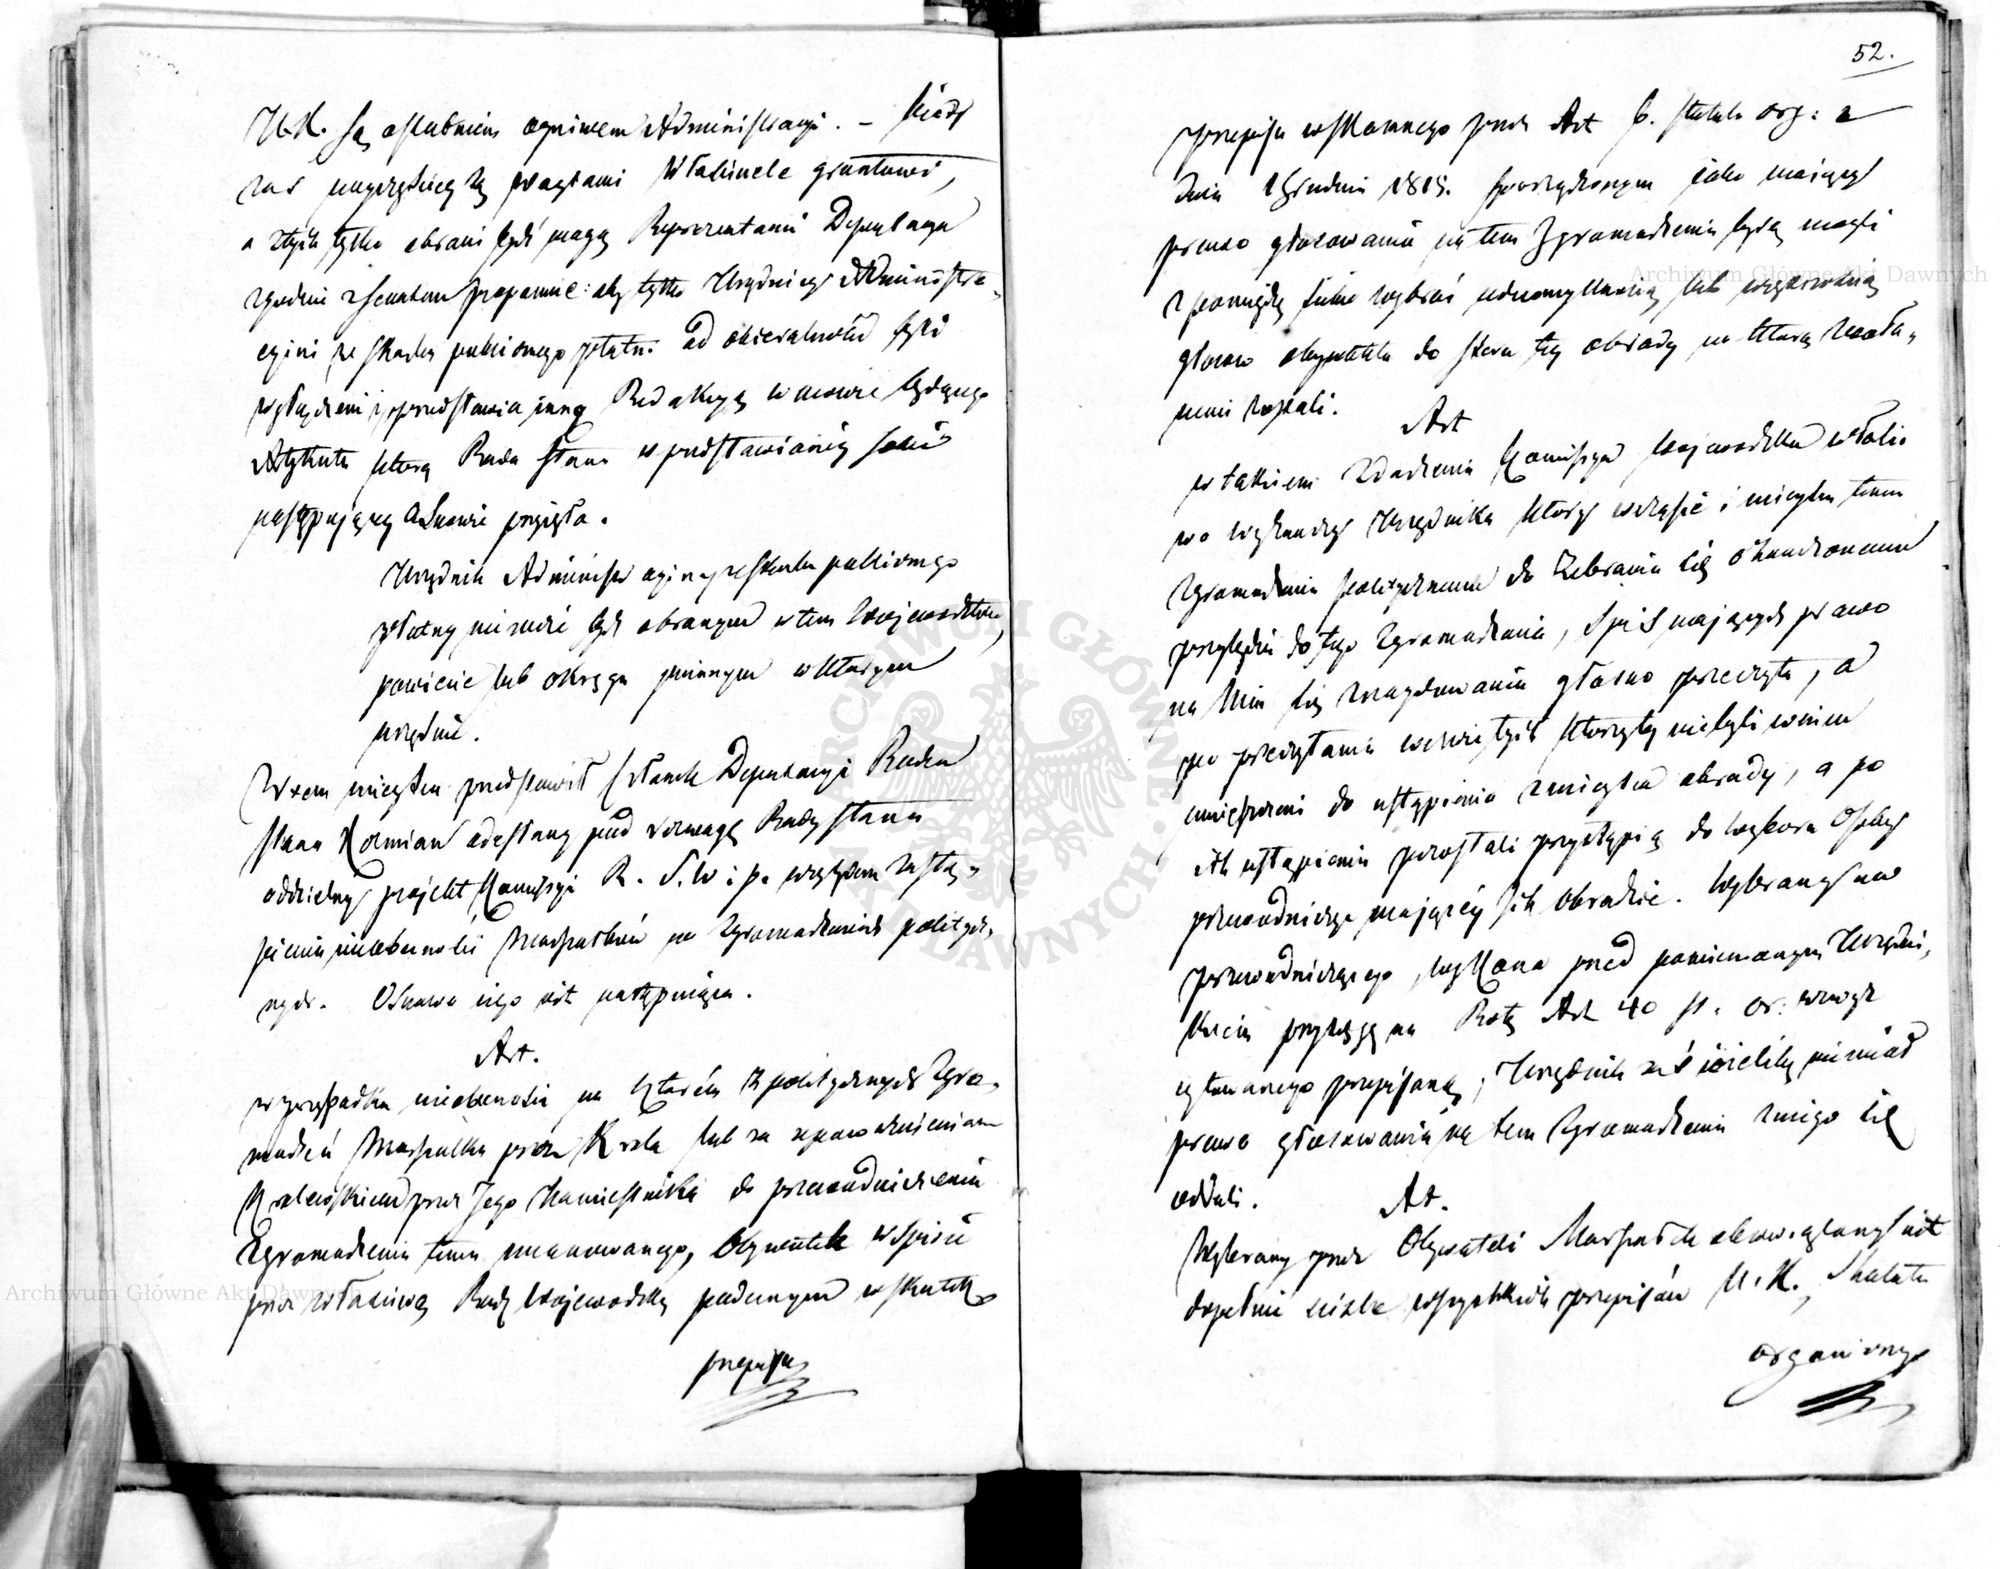 U.K. są ostatniem ogniwem Administracyi. – kiedy
zaś najczęściey są Woytami Właściciele gruntowi,
a z tych tylko obrani bydź mogą Reprezentanci Deputacya
zgodnie z Senatem proponuie: aby tylko Urzędnicy Administra-
cyini ze skarbu publicznego płatni od obieralności byli
wyłączeni i przedstawia inną Redakcyą w mowie będącego
Artykułu którą Rada Stanu w przedstawioney sobie
następującey osnowie przyięła.
Urzędnik Administracyiny ze Skarbu publicznego
płatny nie może bydź obranym w tem Woiewodztwie,
powiecie lub okręgu gminnym w którym
urzęduie.
W tem mieyscu przedstawił Członek Deputacyi Radca
Stanu Koźmian odesłany pod rozwagę Rady Stanu
oddzielny projekt Kommissyi R. S. W. i P. względem zastą-
pienia nieobecności Marszałków na Zgromadzeniach politycz-
nych. Osnowa iego iest następuiąca.
Art.
w przypadku nieobecności na którém z politycznych Zgro-
madzeń Marszałka przez Króla lub za upoważnieniem
Królewskiem przez Jego Namiestnika do przewodniczenia
Zgromadzeniu temu mianowanego, Obywatele w spisie
przez właściwą Radę Woiewodzką podanym w skutek
przepisu
52.
przepisu wskazanego przez Art 6. statutu org: z
dnia 1 Grudnia 1815. sporządzonym iako maiący
prawo głosowania na tem Zgromadzeniu będą mogli
z pomiędzy siebie wybrać jednomyślnością lub większością
głosów obywatela do steru tey obrady na którą zwoła-
nemi zostali.
Art
w takiem zdarzeniu Kommissya Woiewodzka właści-
wa wyznaczy Urzędnika który w czasie i mieyscu temu
zgromadzeniu politycznemu do zebrania się oznaczonemu
przybędzie do tego Zgromadzenia, Spis mających prawo
na Nim się znaydowania głośno przeczyta, a
po przeczytaniu wezwie tych którzyby niebyli w nim
umieszczeni do ustąpienia z mieysca obrady, a po
ich ustąpieniu pozostali przystąpią do wyboru Osoby
przewodniczyć mającéy Ich Obradzie. Wybrany na
przewodniczącego, wykona przed pomienionym Urzędni-
kiem przysięgę na Rotę Art 40 st. or: wyżey
cytowanego przepisaną, Urzędnik zaś ieżeliby niemiał
prawa głosowania na tem Zgromadzeniu z niego się
oddali.
Art.
Wybrany przez Obywateli Marszałek obowiązany iest
dopełnić ściśle wszystkich przepisów U.K., Statutu
organicznego